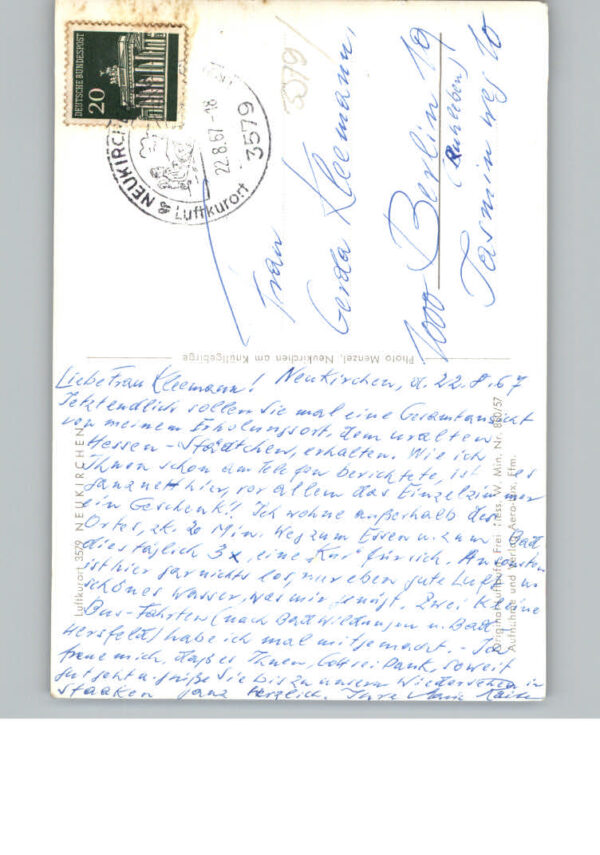 DEUTSCHE BUNDESPOST
20
NEUKIRCHEN
22.8.67-18
3579
Luftkurort
3579
Frau
Gerda Kleemann,
1000 Berlin 19
(Ruhleben)
Jasminweg 10
Photo Menzel, Neukirchen am Knüllgebirge
Luftkurort 3579 NEUKIRCHEN
Originalluftbild, Frei: Hess. W. Min. Nr. 880/57
Aufnahme und Verlag Aero-Lux, Ffm.
Liebe Frau Kleemann! Neukirchen, d. 22.8.67
Letztendlich sollen Sie mal eine Gesamtansicht
von meinem Erholungsort, dem uralten
Hessen-Städtchen, erhalten. Wie ich
Ihnen schon am Telefon berichtete, ist es
ganz nett hier, vor allem das Einzelzimmer
ein Geschenk!! Ich wohne außerhalb des
Ortes, 20 Min. Weg zum Essen u. zum Bad,
dies täglich 3x, eine „Kur" für sich. Ansonsten
ist hier gar nichts los, nur eben gute Luft u.
schönes Wasser, was mir genügt. Zwei kleine
Bus-Fahrten (nach Bad Wildungen u. Bad
Hersfeld) habe ich mal mitgemacht. - Ich
freue mich, daß es Ihnen, Gott sei Dank, soweit
gut geht u. grüße Sie bis zu unserm Wiedersehen in
Staaken ganz herzlich. Ihre